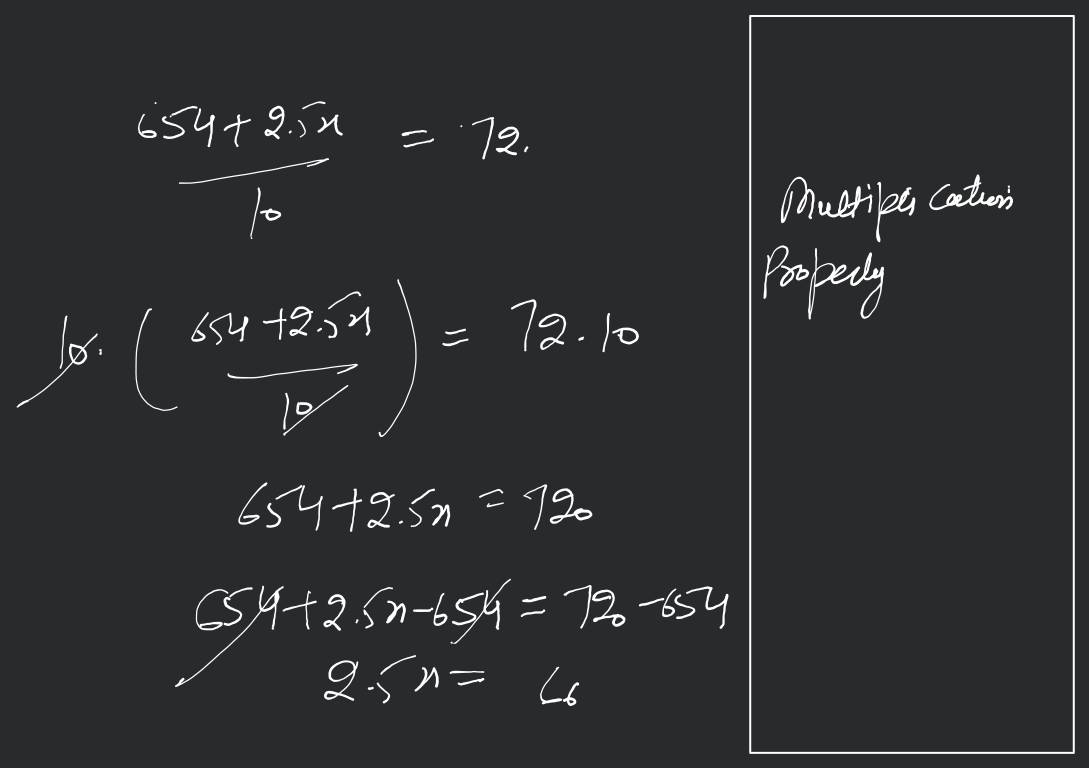 654+2.5x
10
= 72.
10. (
654+2.5x
10
) = 72.10
654+2.5x = 720
654+2.5x-654 = 720-654
2.5x = 66
Multiplication
Property